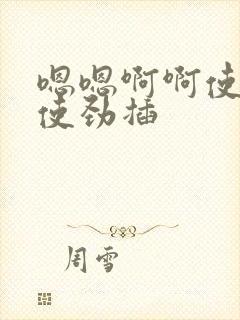 嗯嗯啊啊使
使劲插
周雪